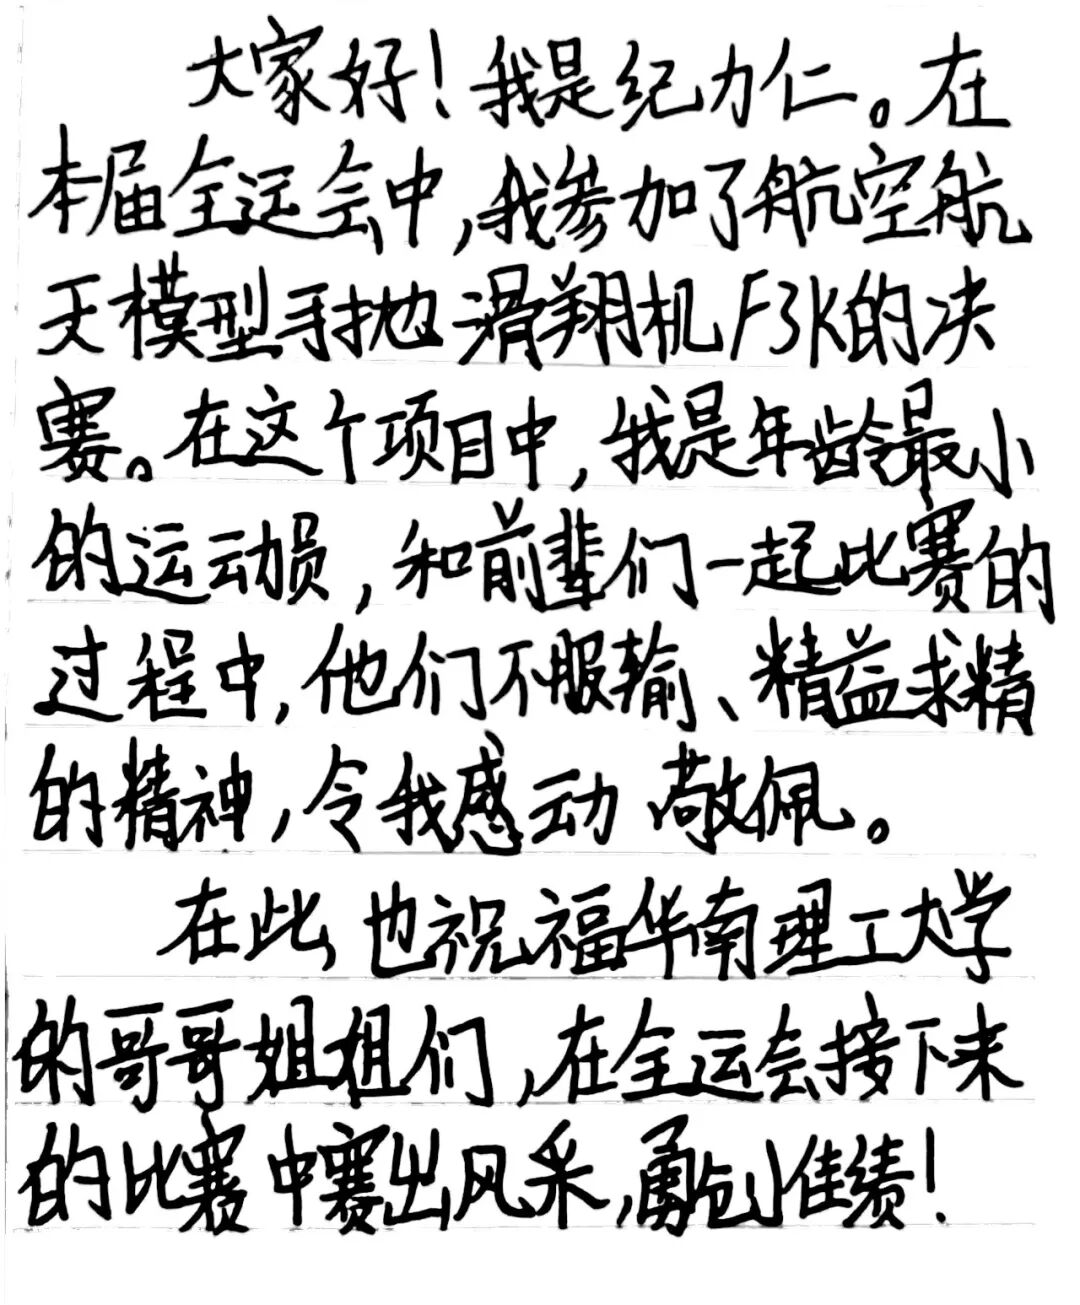 大家好！我是纪力仁。在
本届全运会中，我参加了航空航
天模型手抛滑翔机F3K的决
赛。在这个项目中，我是年龄最小
的运动员，和前辈们一起比赛的
过程中，他们不服输、精益求精
的精神，令我感动 敬佩。
在此，也祝福华南理工大学
的哥哥姐姐们，在全运会接下来
的比赛中赛出风采，勇创佳绩！